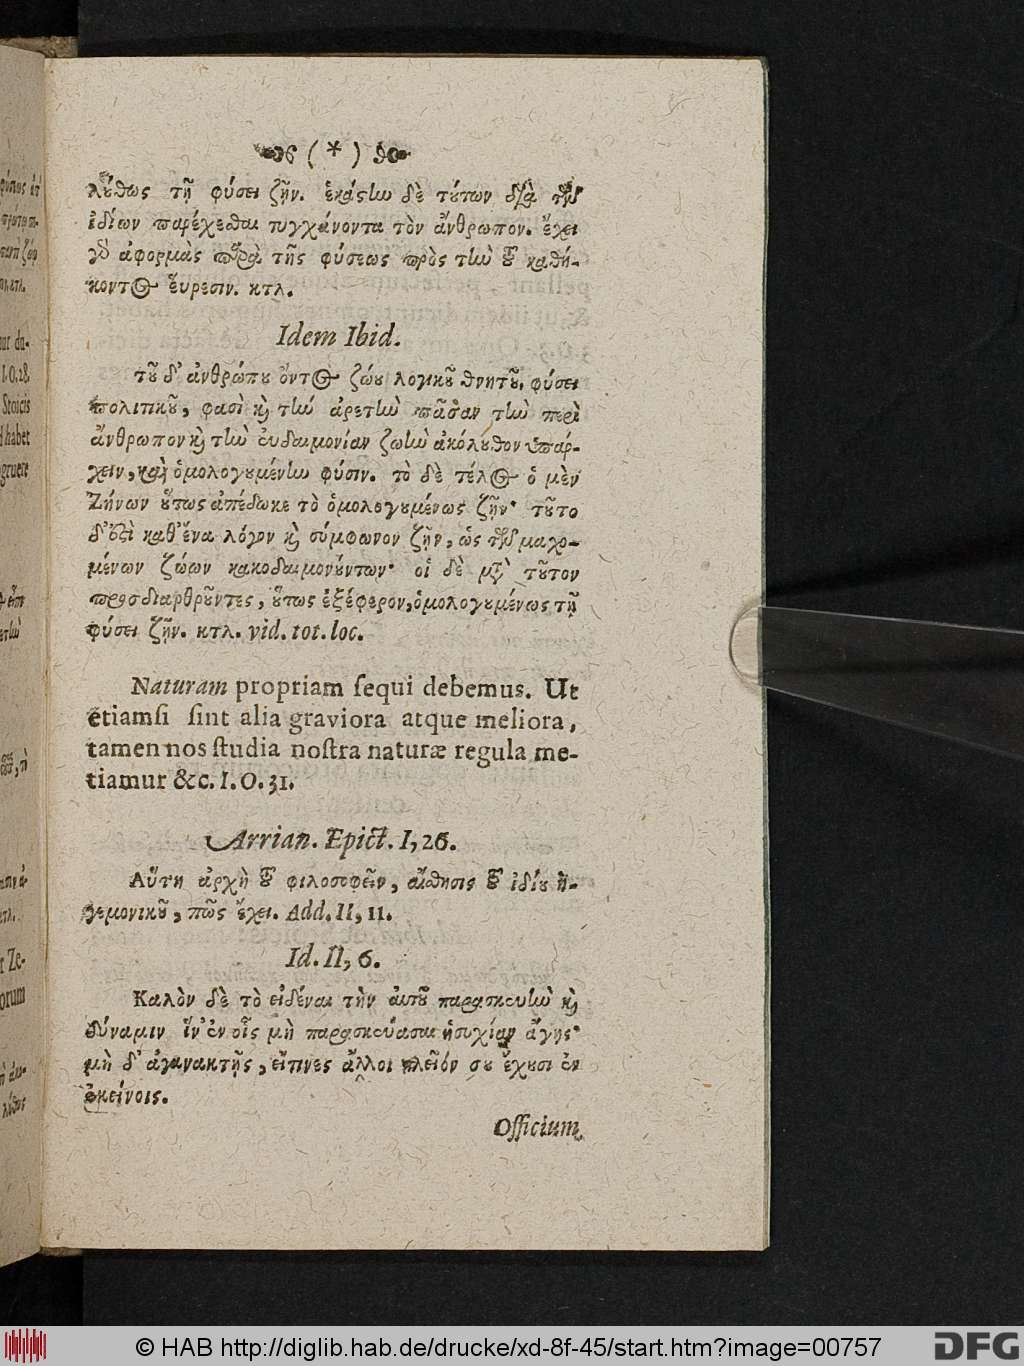 ( * )
λύθως τῇ φύσει ζῆν. ἑκάστω δὲ τούτων διὰ τῶν
ἰδίων παρέχεσθαι τυγχάνοντα τὸν ἄνθρωπον. ἔχει
γὸ ἀφορμὰς παρὰ τῆς φύσεως πρὸς τὴν τοῦ καθή-
κοντος εὕρεσιν. κτλ.
Idem Ibid.
τοῦ δ' ἀνθρώπου ὄντος ζώου λογικοῦ θνητοῦ, φύσει
πολιτικοῦ, φασὶ καὶ τὴν ἀρετὴν πᾶσαν τὴν περὶ
ἄνθρωπον καὶ τὴν εὐδαιμονίαν ζωὴν ἀκόλουθον ὑπάρ-
χειν, καὶ ὁμολογουμένην φύσιν. τὸ δὲ τέλος ὁ μὲν
Ζήνων οὕτως ἀπέδωκε τὸ ὁμολογουμένως ζῆν· τοῦτο
δ' ἐστὶ καθ' ἕνα λόγον καὶ σύμφωνον ζῆν, ὡς τῶν μαχο-
μένων ζώων κακοδαιμονούντων· οἱ δὲ μετὰ τοῦτον
προσδιαρθροῦντες, οὕτως ἐξέφερον, ὁμολογουμένως τῇ
φύσει ζῆν. κτλ. vid. tot. loc.
Naturam propriam sequi debemus. Ut
etiamsi sint alia graviora atque meliora,
tamen nos studia nostra naturæ regula me-
tiamur &c. I. O. 31.
Arrian. Epict. I, 26.
Αὕτη ἀρχὴ τοῦ φιλοσοφεῖν, αἴσθησις τοῦ ἰδίου ἡ-
γεμονικοῦ, πῶς ἔχει. Add. II, 11.
Id. II, 6.
Καλὸν δὲ τὸ εἰδέναι τὴν αὑτοῦ παρασκευὴν καὶ
δύναμιν ἵν' ἐν οἷς μὴ παρασκεύασαι ἡσυχίαν ἄγῃς·
μὴ δ' ἀγανακτῇς, εἴτινες ἄλλοι πλεῖόν σου ἔχουσι ἐν
ἐκείνοις.
Officium
© HAB http://diglib.hab.de/drucke/xd-8f-45/start.htm?image=00757
DFG